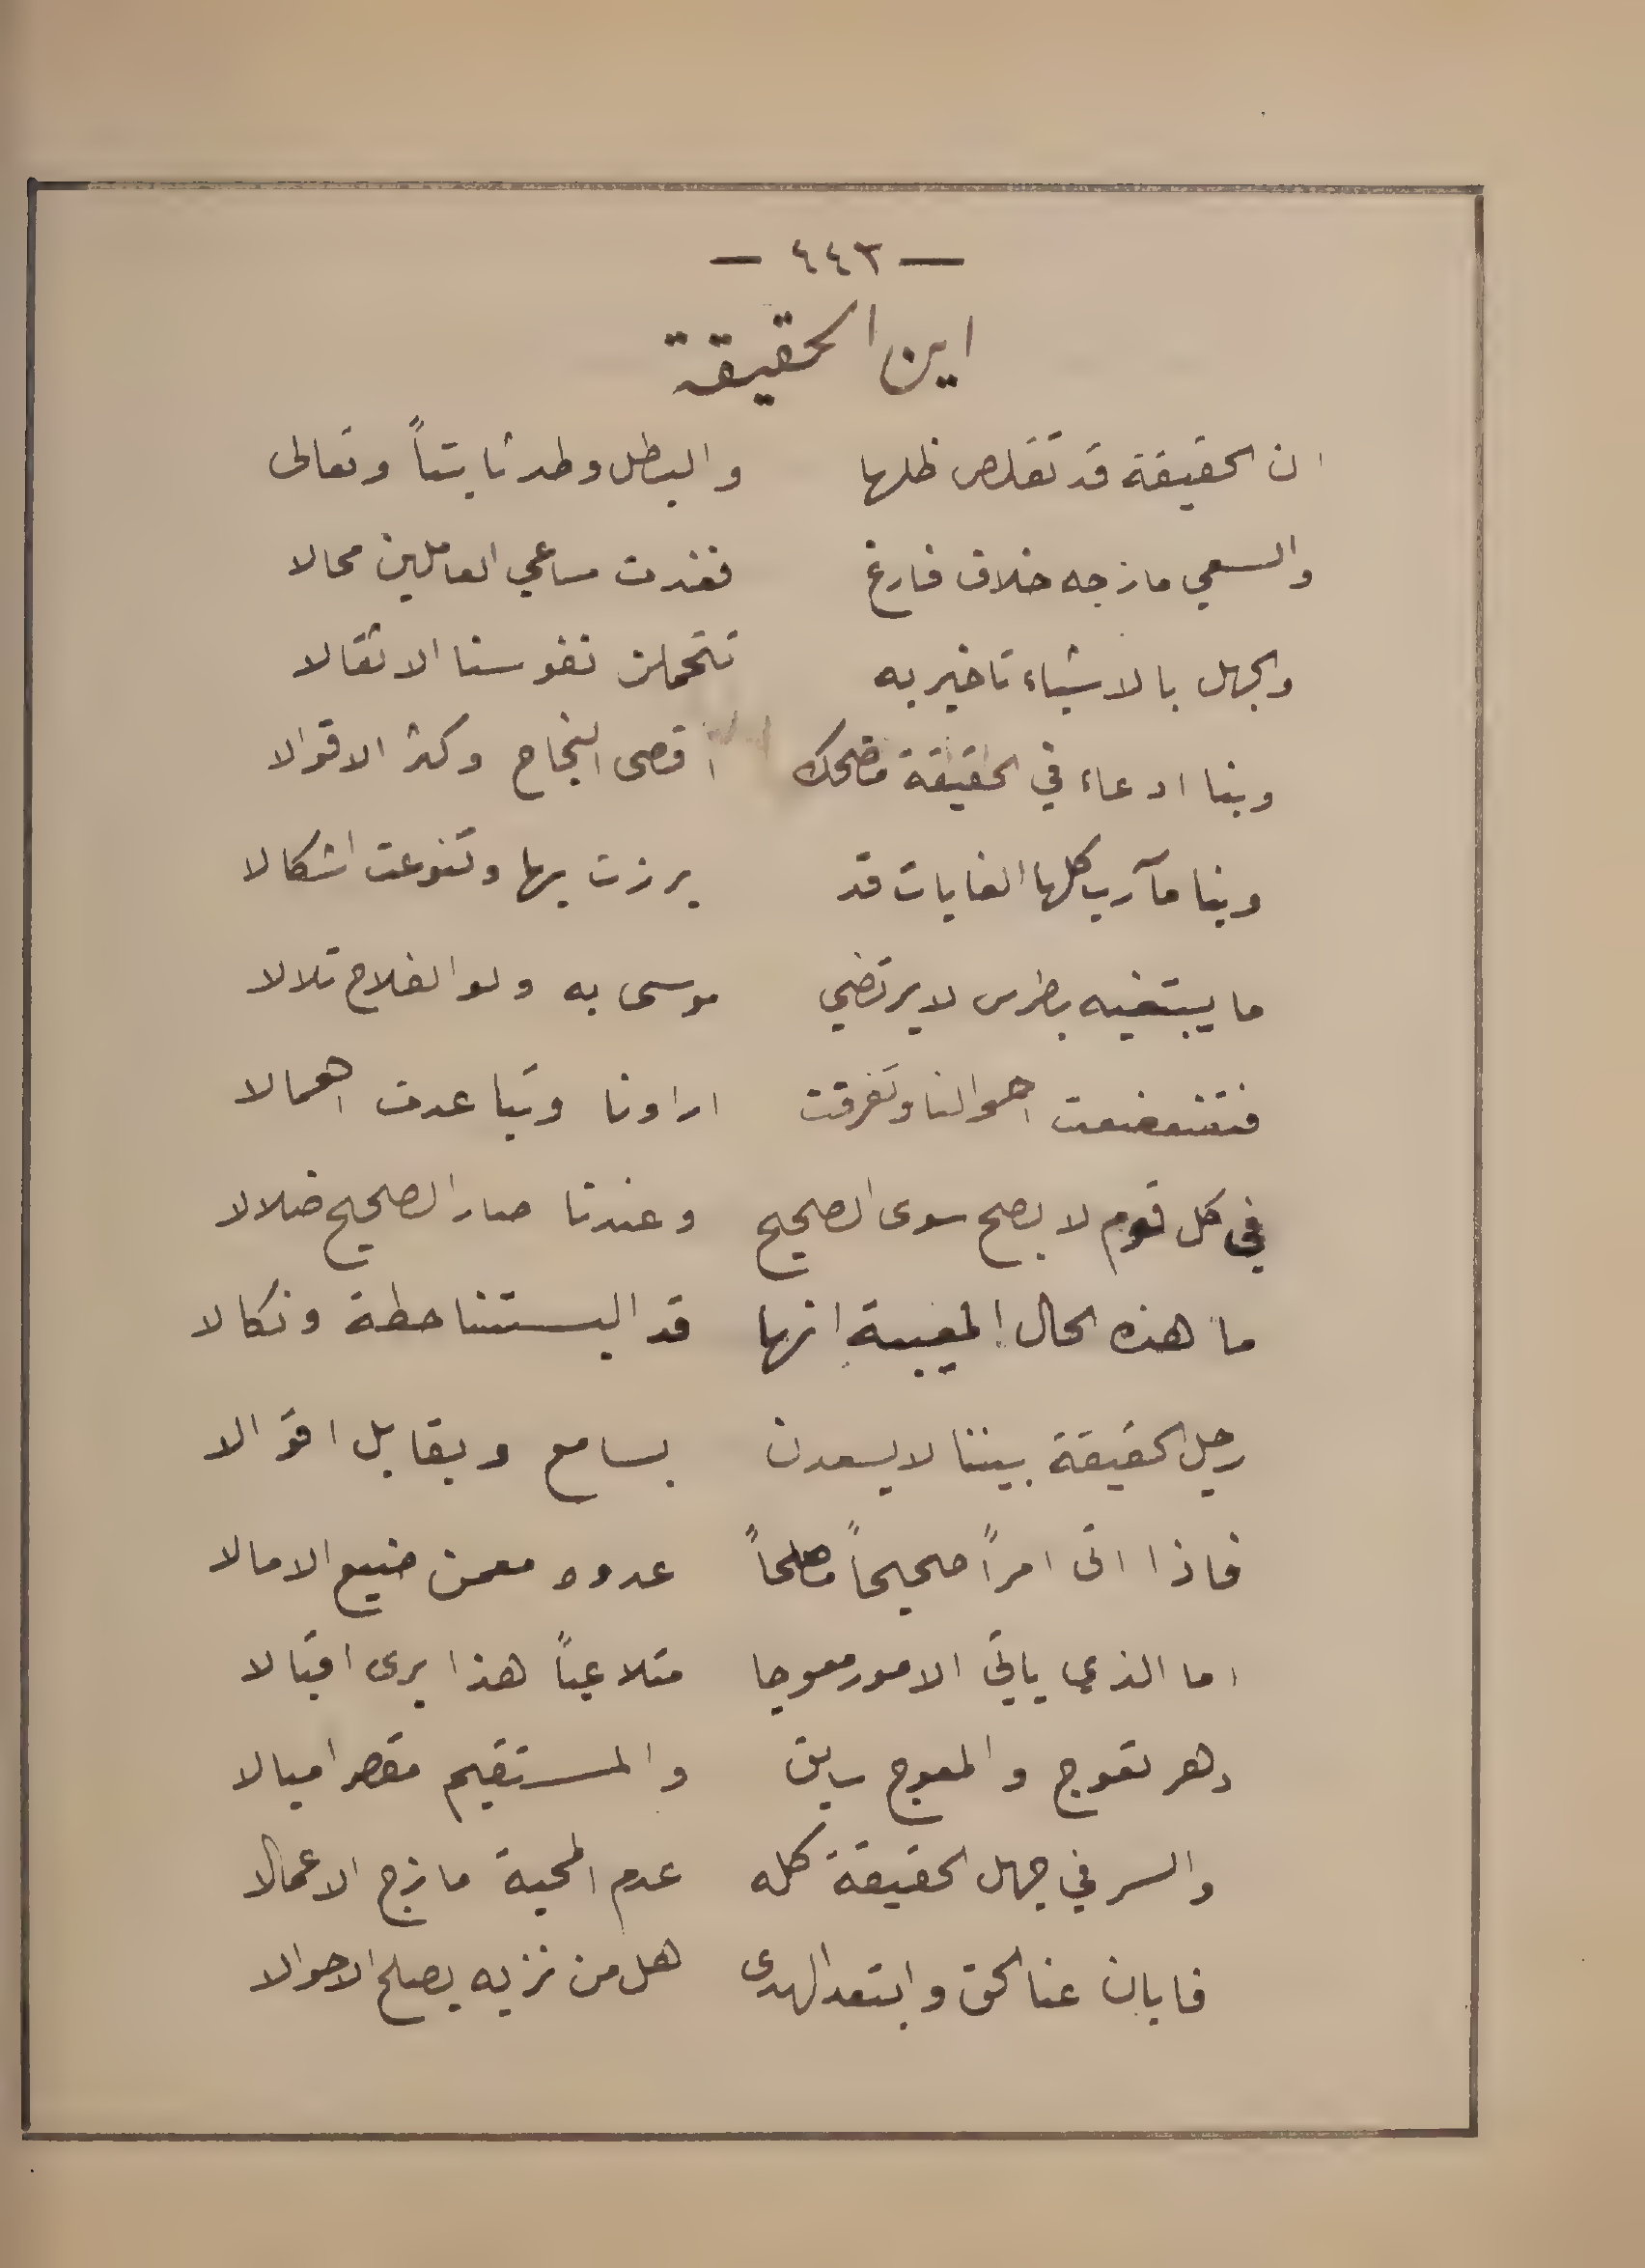 — ٤٤٣ —
اين الحقيقة
ان الحقيقة قد تقلص ظلها والبطل وطد ثابتاً وتعالى
والسعي مازجه خلاف فارغ فغدت مساعي العاملين محالا
والجهل بالاشياء تاخير به تتحملن نفوسنا الاثقالا
وبنا ادعاء في الحقيقة مضحك اقصى النجاح وكثر الاقوالا
وبنا مآرب كلها الغايات قد برزت بها وتنوعت اشكالا
ما يبتغيه بطرس لا يرتضي موسى به ولو الفلاح تلالا
فتضعضعت احوالنا وتفرقت اراونا وتباعدت اهمالا
في كل قوم لا يصح سوى الصحيح وعندنا صار الصحيح ضلالا
ما هذه الحال المعيبة انها قد البستنا حطة ونكالا
رجل الحقيقة بيننا لا يسعدن بسامع ويقابل اقوالا
فاذا اتى امراً صحيحاً مصلحاً عدوه ممن ضيع الامالا
اما الذي ياتي الامور معوجا متلاعباً هذا يرى اقبالا
دهر تعوج والمعوج سابق والمستقيم مقصر اميالا
والسر في جهل الحقيقة كله عدم المحبة مازج الاعمالا
فابان عنا الحق وابتعد الهدى هل من نزيه يصلح الاحوالا